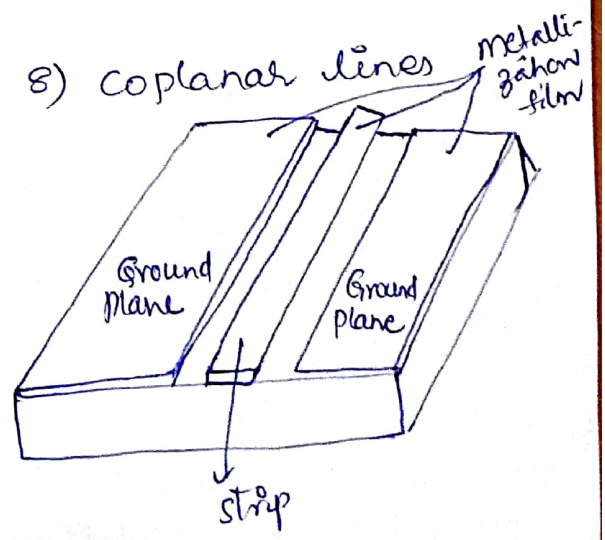 8) coplanar lines
metalli-
zation
film
Ground
Plane
Ground
plane
strip